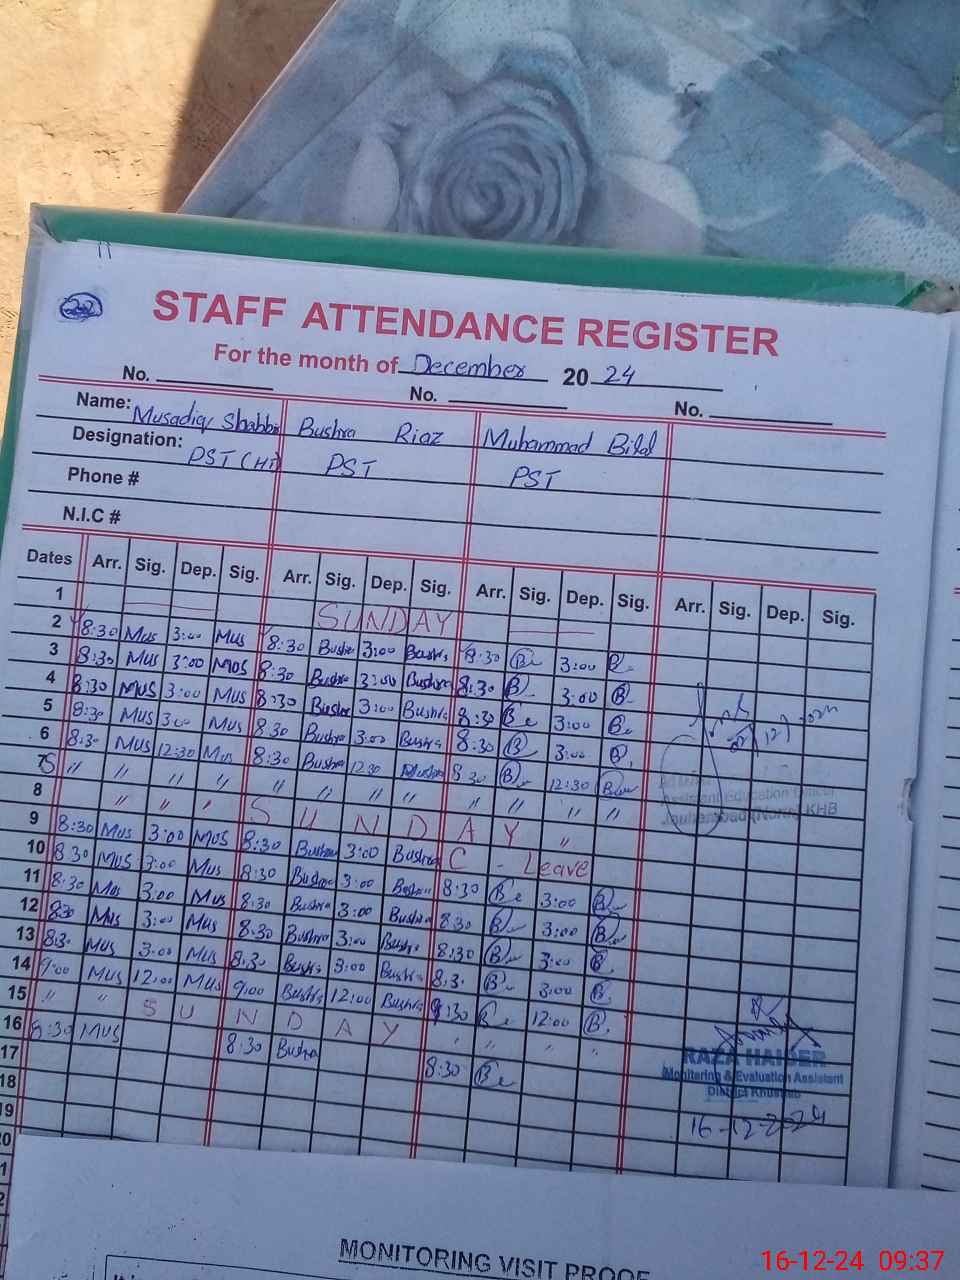 22
STAFF ATTENDANCE REGISTER
For the month of December 20 24
No. No. No.
Name: Musadiq Shabbir Bushra Riaz Muhammad Bilal
Designation: PST (HT) PST PST
Phone #
N.I.C #
Dates Arr. Sig. Dep. Sig. Arr. Sig. Dep. Sig. Arr. Sig. Dep. Sig. Arr. Sig. Dep. Sig.
1 SUNDAY
2 8:30 Mus 3:00 Mus 8:30 Bushra 3:00 Bushra 8:30 3:00
3 8:30 Mus 3:00 Mus 8:30 Bushra 3:00 Bushra 8:30 3:00
4 8:30 Mus 3:00 Mus 8:30 Bushra 3:00 Bushra 8:30 3:00
5 8:30 Mus 3:00 Mus 8:30 Bushra 3:00 Bushra 8:30 3:00
6 8:30 Mus 12:30 Mus 8:30 Bushra 12:30 Bushra 8:30 12:30
7 S " " " " " " " " " " " "
8 " " " SUNDAY "
9 8:30 Mus 3:00 Mus 8:30 Bushra 3:00 Bushra C - Leave
10 8:30 Mus 3:00 Mus 8:30 Bushra 3:00 Bushra 8:30 3:00
11 8:30 Mus 3:00 Mus 8:30 Bushra 3:00 Bushra 8:30 3:00
12 8:30 Mus 3:00 Mus 8:30 Bushra 3:00 Bushra 8:30 3:00
13 8:30 Mus 3:00 Mus 8:30 Bushra 3:00 Bushra 8:30 3:00
14 9:00 Mus 12:00 Mus 9:00 Bushra 12:00 Bushra 9:30 12:00
15 " " SUNDAY " " " "
16 8:30 Mus 8:30 Bushra 8:30
17
18
19
20
RAZA HAIDER
Monitoring & Evaluation Assistant
District Khushab
16-12-2024
MONITORING VISIT PROOF
16-12-24 09:37